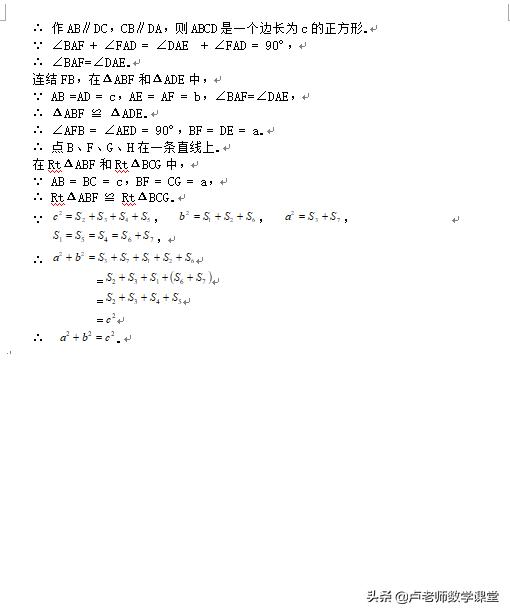 ∴ 作AB∥DC，CB∥DA，则ABCD是一个边长为c的正方形.
∵ ∠BAF + ∠FAD = ∠DAE + ∠FAD = 90°，
∴ ∠BAF=∠DAE.
连结FB，在ΔABF和ΔADE中，
∵ AB =AD = c，AE = AF = b，∠BAF=∠DAE，
∴ ΔABF ≌ ΔADE.
∴ ∠AFB = ∠AED = 90°，BF = DE = a.
∴ 点B、F、G、H在一条直线上.
在RtΔABF和RtΔBCG中，
∵ AB = BC = c，BF = CG = a，
∴ RtΔABF ≌ RtΔBCG.
∵ c²=S₂+S₃+S₄+S₅， b²=S₁+S₂+S₆， a²=S₃+S₇，
S₁=S₅=S₄=S₆+S₇，
∴ a²+b²=S₃+S₇+S₁+S₂+S₆
=S₂+S₃+S₁+(S₆+S₇)
=S₂+S₃+S₄+S₅
=c²
∴ a²+b²=c².
头条 @卢老师数学课堂